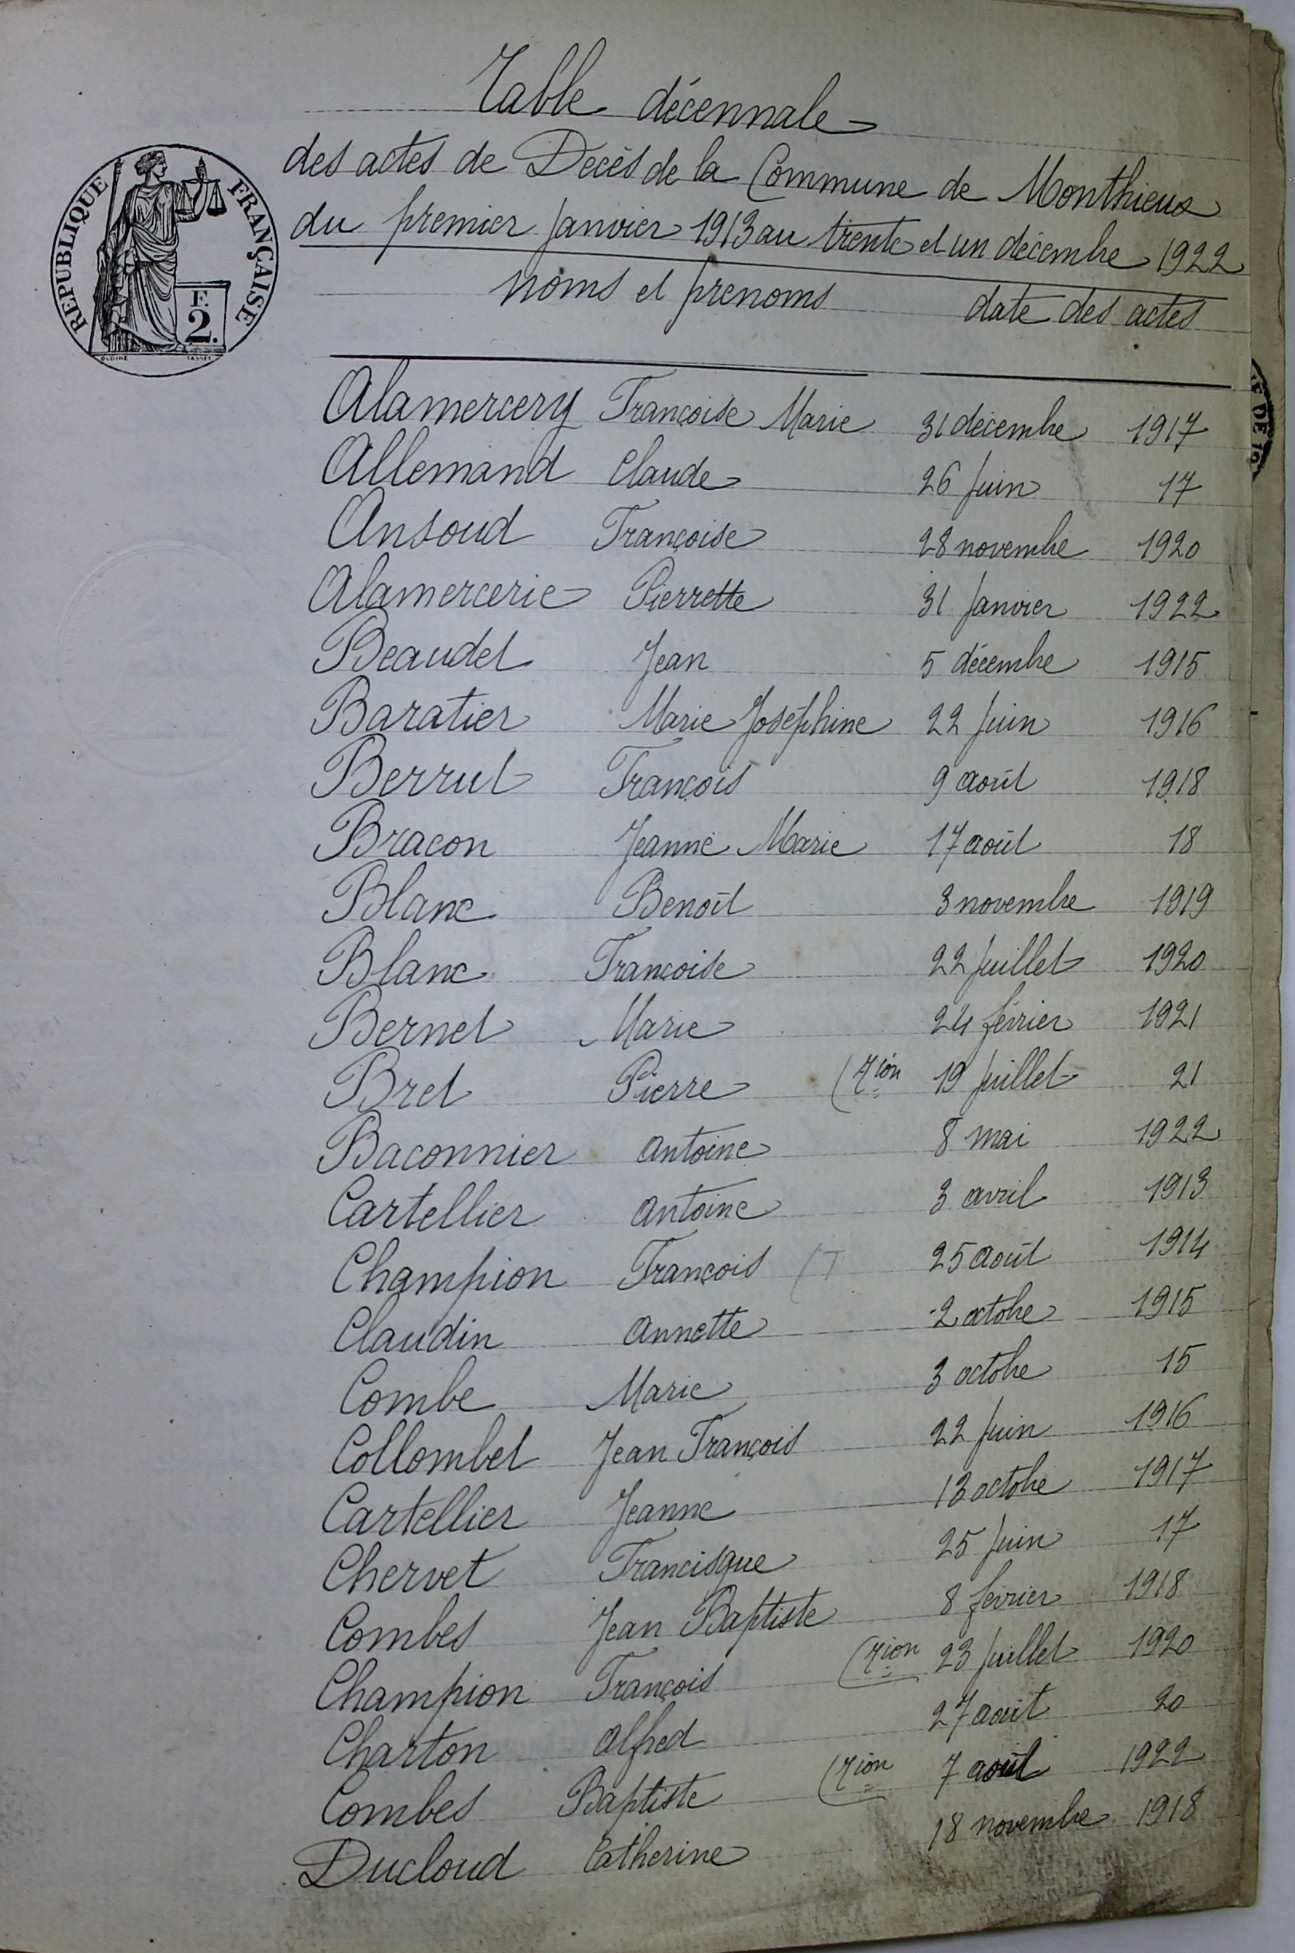 Table décennale
des actes de Decès de la Commune de Monthieux
du premier janvier 1913 au trente et un décembre 1922
REPUBLIQUE FRANÇAISE
F.
2.
noms et prenoms date des actes
Alamercery Françoise Marie 31 décembre 1917
Allemand Claude 26 juin 17
Ansoud Françoise 28 novembre 1920
Alamercerie Pierrette 31 Janvier 1922
Beaudet Jean 5 décembre 1915
Baratier Marie Joséphine 22 juin 1916
Berrut François 9 août 1918
Bracon Jeanne Marie 17 août 18
Blanc Benoît 3 novembre 1919
Blanc Francoise 22 juillet 1920
Bernet Marie 24 février 1921
Bret Pierre 19 juillet 21
Baconnier antoine 8 mai 1922
Cartellier antoine 3 avril 1913
Champion François (T 25 août 1914
Claudin annette 2 octobre 1915
Combe Marie 3 octobre 15
Collombet Jean François 22 juin 1916
Cartellier Jeanne 13 octobre 1917
Chervet Francisque 25 juin 17
Combes Jean Baptiste 8 fevrier 1918
Champion François 23 juillet 1920
Charton alfred 27 août 20
Combes Baptiste 7 août 1922
Ducloud Catherine 18 novembre 1918